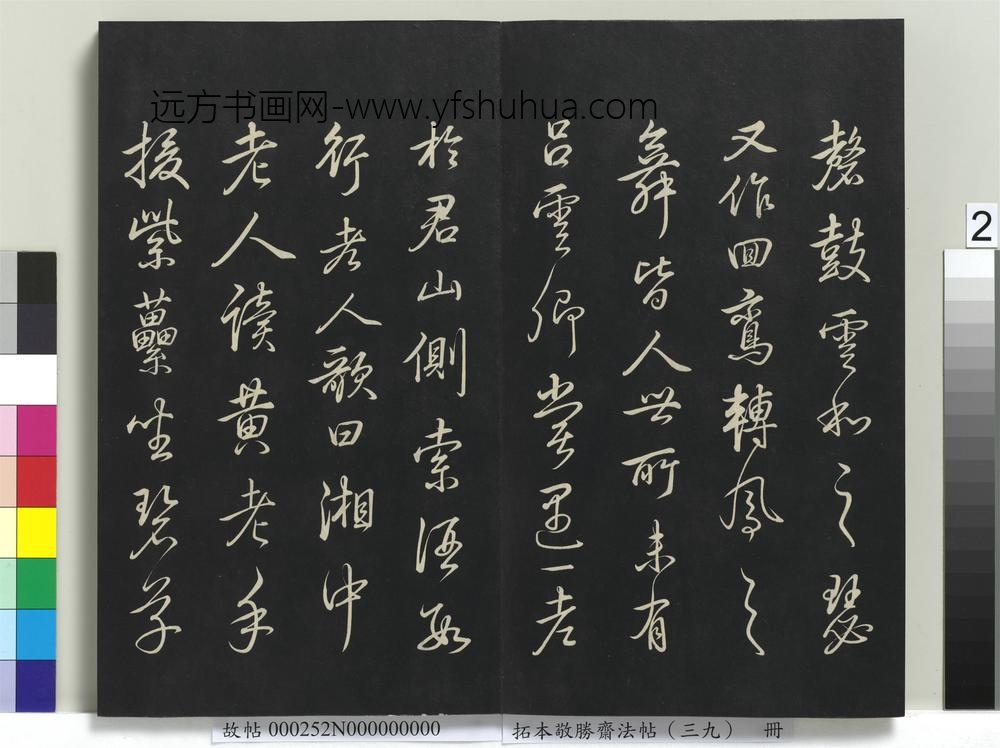 远方书画网-www.yfshuhua.com
磬鼓雲和之瑟
又作回鸞轉鳳之
舞皆人世所未有
吕雲卿嘗遇一老
於君山側索酒數
行老人歌曰湘中
老人讀黃老手
援紫藟坐碧草
2
故帖 000252N000000000
拓本敬勝齋法帖（三九） 冊